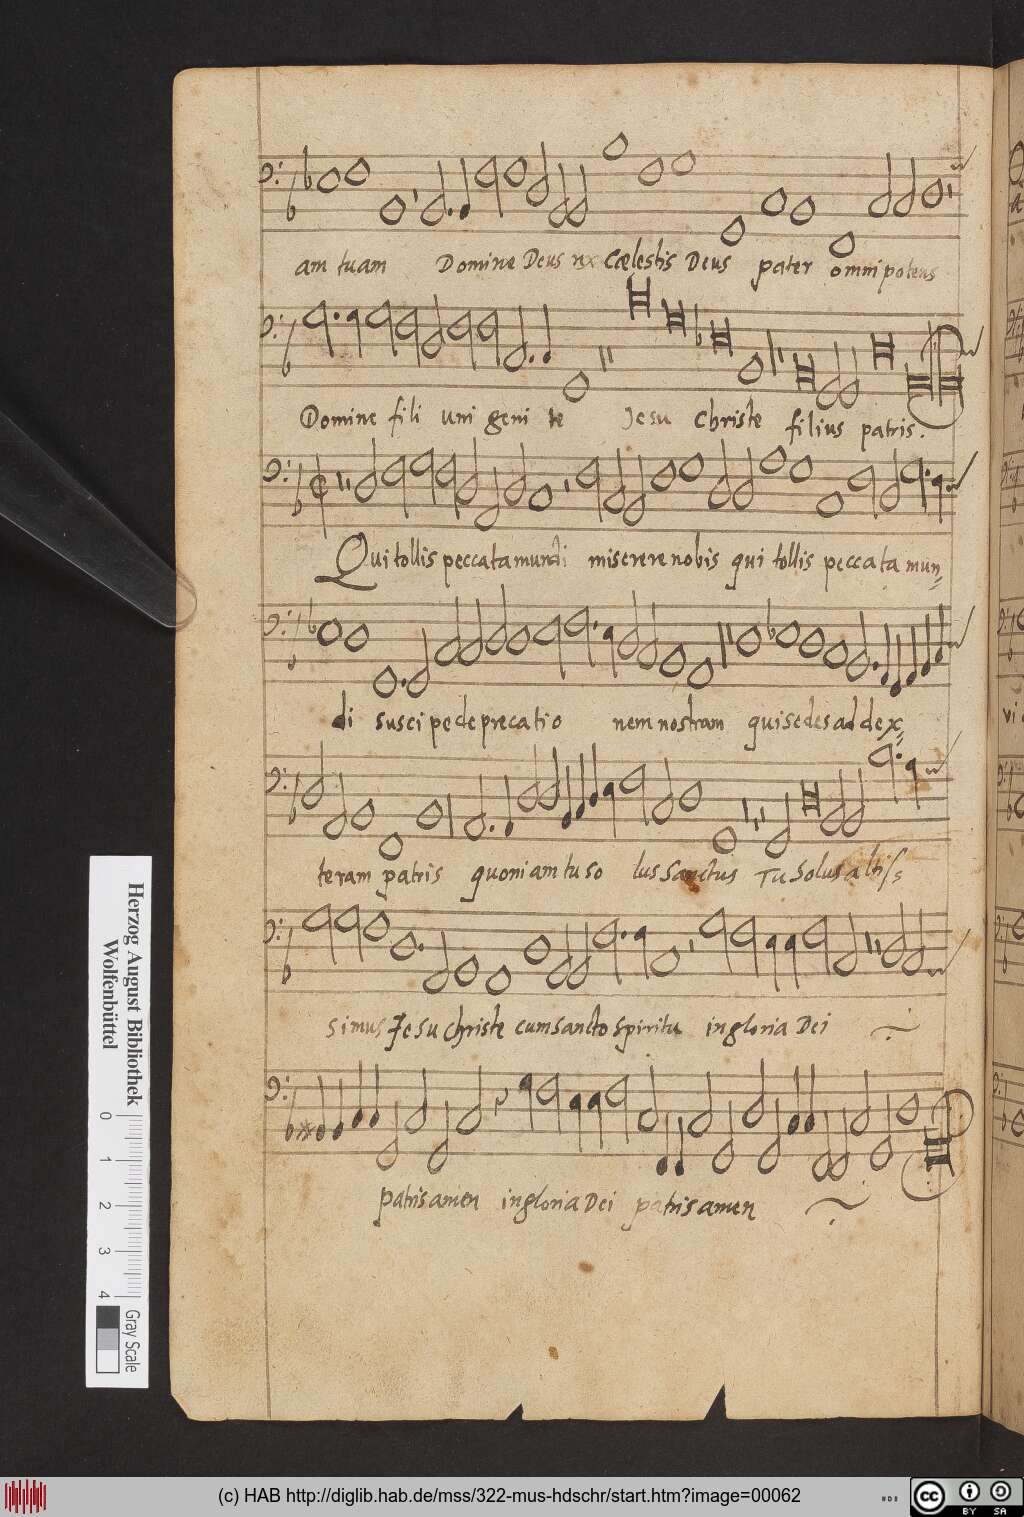 am tuam Domine Deus rx Cœlestis Deus pater omnipoteus
Domine fili uni geni te Jesu Christe filius patris.
Qui tollis peccata mundi miserere nobis qui tollis peccata mun=
di suscipe deprecatio nem nostram qui sedes ad dex=
teram patris quoniam tu so lus Sanctus Tu Solus altis=
simus Jesu Christe cum sancto spiritu in gloria Dei
patris amen in gloria Dei patris amen
Herzog August Bibliothek
Wolfenbüttel
0 1 2 3 4
Gray Scale
(c) HAB http://diglib.hab.de/mss/322-mus-hdschr/start.htm?image=00062
cc BY SA